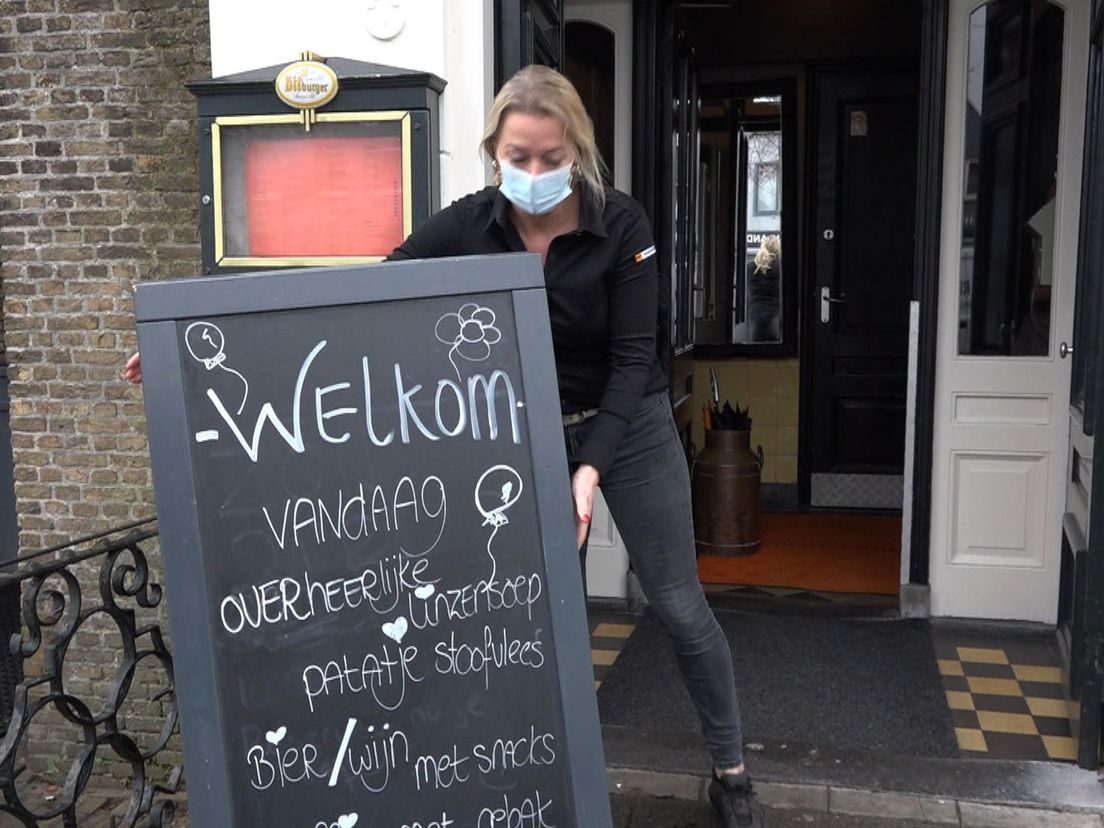 Bitburger
-Welkom
VANDAAG
OVERHEERLIJKE
LINZENSOEP
PATATJE STOOFVLEES
BIER/WIJN MET SNACKS
MET GEBAK